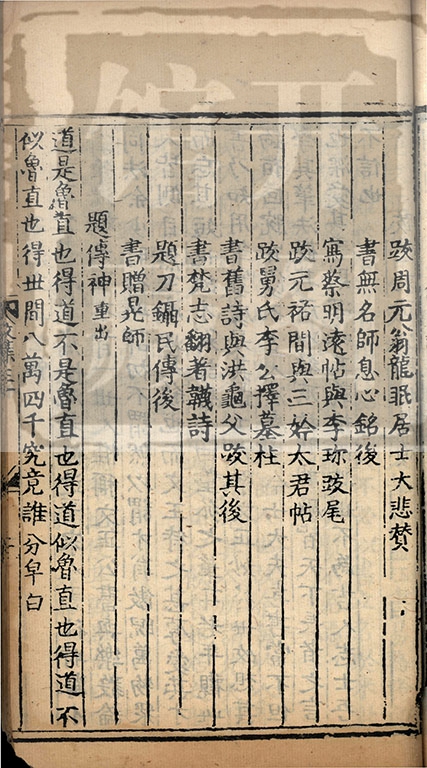 跋周元翁龍眠居士大悲贊
書無名師息心銘後
寫蔡明遠帖與李珍跋尾
跋元祐間與三妗太君帖
跋舅氏李公擇墓柱
書舊詩與洪龜父跋其後
書梵志翻著韈詩
題刀鑷民傳後
書贈晁師
題傳神重出
道是魯直也得道不是魯直也得道似魯直也得道不
似魯直也得世間八萬四千究竟誰分皁白